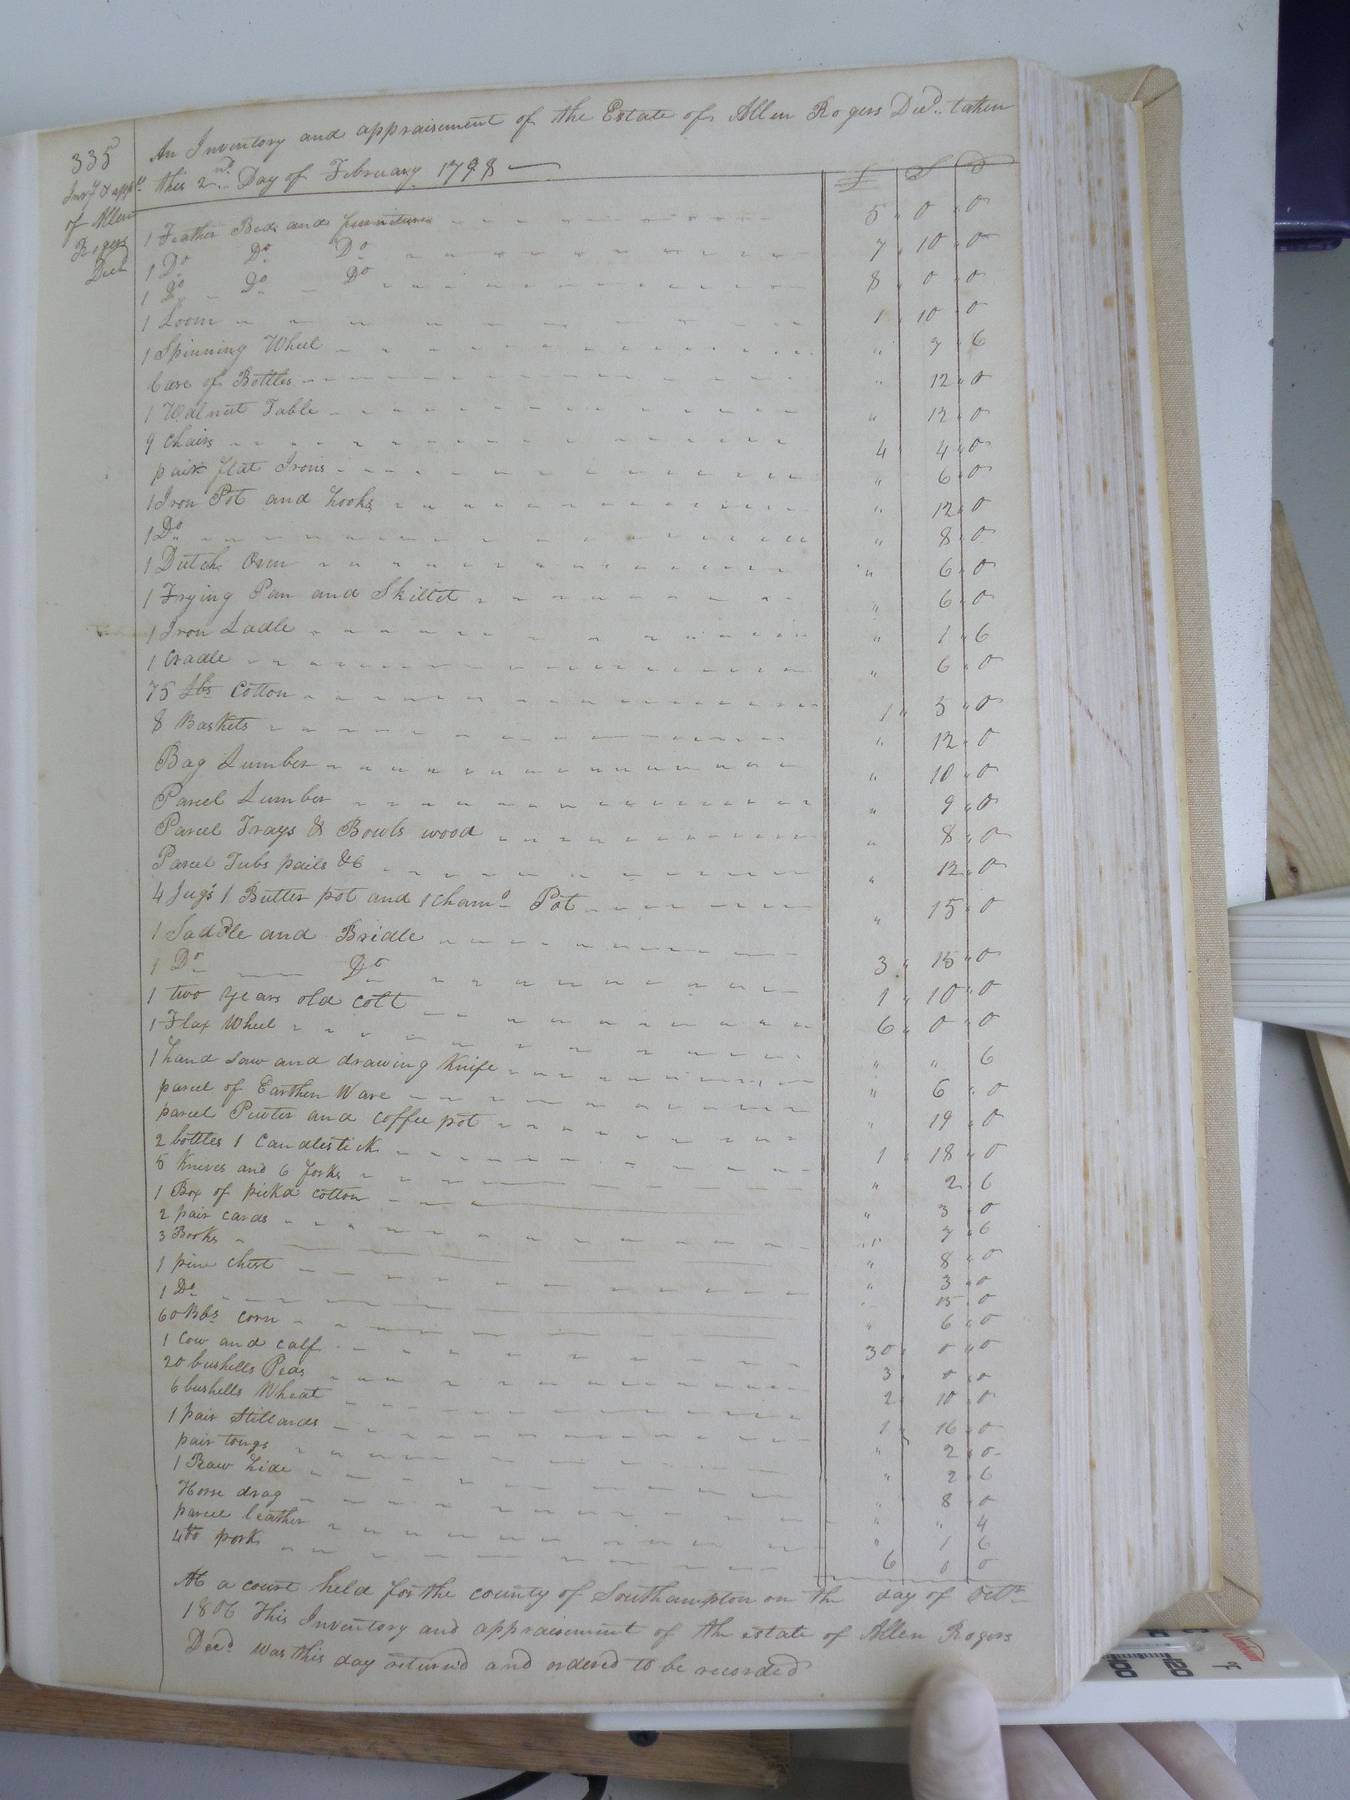 335
Invy & appmt
of Allen
Rogers
Decd
An Inventory and appraisement of the Estate of Allen Rogers Decd. taken
this 2nd Day of February 1798
£ S D
1 Feather Bed and furniture 5 " 0 " 0
1 Do Do Do 7 " 10 " 0
1 Do Do Do 8 " 0 " 0
1 Loom 1 " 10 " 0
1 Spinning Wheel " 7 " 6
Case of Bottles " 12 " 0
1 Walnut Table " 12 " 0
9 chairs 4 " 4 " 0
pair flat Irons " 6 " 0
1 Iron Pot and hooks " 12 " 0
1 Do " 8 " 0
1 Dutch Oven " 6 " 0
1 Frying Pan and Skillet " 6 " 0
1 Iron Ladle " 1 " 6
1 Cradle " 6 " 0
75 Lbs Cotton 1 " 3 " 0
8 Baskets " 12 " 0
Bag Lumber " 10 " 0
Parcel Lumber " 9 " 0
Parcel Trays & Bowls wood " 8 " 0
Parcel Tubs pails &c " 12 " 0
4 Jugs 1 Butter pot and 1 Chamr Pot " 15 " 0
1 Saddle and Bridle 3 " 15 " 0
1 Do Do 1 " 10 " 0
1 two years old colt 6 " 0 " 0
1 Flax Wheel " " 6
1 hand saw and drawing Knife " 6 " 0
parcel of Earthen Ware " 19 " 0
parcel Pewter and coffee pot 1 " 18 " 0
2 bottles 1 Candlestick " 2 " 6
5 Knives and 6 forks " 3 " 0
1 Box of pickd cotton " 7 " 6
2 pair cards " 8 " 0
3 Books " 3 " 0
1 pine chest " 15 " 0
1 Do " 6 " 0
60 Bbs corn 30 " 0 " 0
1 Cow and calf 3 " 0 " 0
20 bushells Peas 2 " 10 " 0
6 bushells Wheat 1 " 16 " 0
1 pair Stillards " 2 " 0
pair tongs " 2 " 6
1 Raw hide " 8 " 0
Horse drag " " 4
parcel leather " 1 6
pork 6 0 0
At a court held for the county of Southampton on the day of Octr
1806 This Inventory and appraisement of the estate of Allen Rogers
Decd was this day returnd and ordered to be recorded